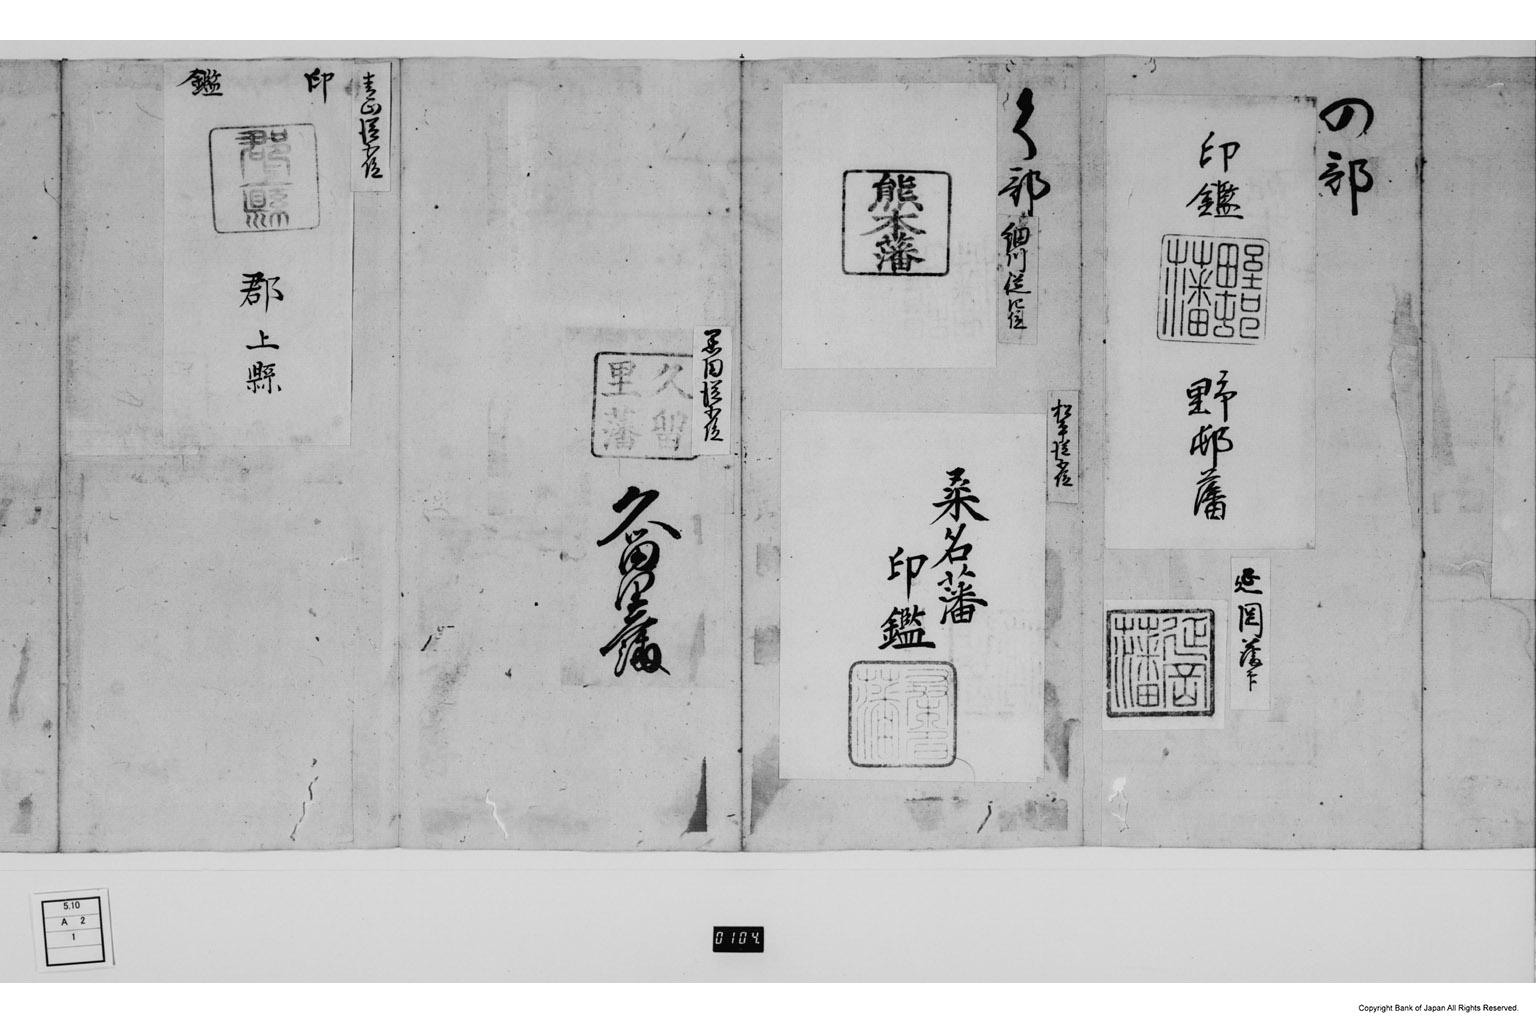 の部
印鑑
野邨藩
延岡藩
延岡藩
く部
細川従四位
熊本藩
松平従五位
桑名藩
印鑑
黒田従五位
久留里藩
久留里藩
青山従五位
印鑑
郡上縣
5.10
A 2
1
0104
Copyright Bank of Japan All Rights Reserved.